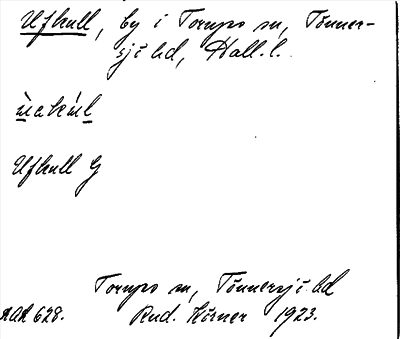 Ufhull, by i Torups sn, Tönner-
sjö hd, Hall. l.
Ufhull G
Torups sn, Tönnersjö hd
AOH 628. Rud. Hörner 1923.